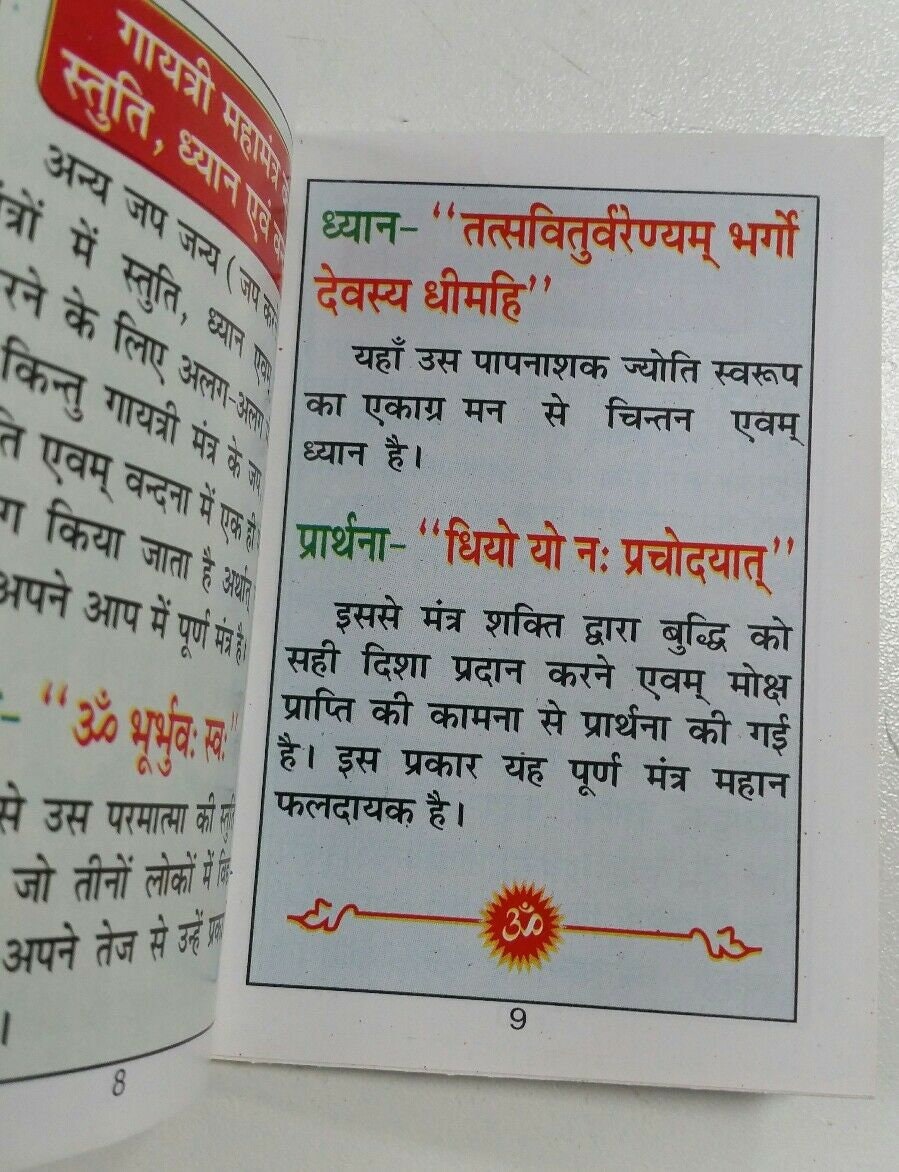 गायत्री महामंत्र
स्तुति, ध्यान एवं
अन्य जप जन्य (जप
में स्तुति, ध्यान एवम्
के लिए अलग-अलग
किन्तु गायत्री मंत्र के जप
एवम् वन्दना में एक ही
किया जाता है अर्थात्
अपने आप में पूर्ण मंत्र है।
- “ॐ भूर्भुवः स्वः”
से उस परमात्मा की स्तुति
जो तीनों लोकों में
अपने तेज से उन्हें
।
8
ध्यान- “तत्सवितुर्वरेण्यम् भर्गो
देवस्य धीमहि”
यहाँ उस पापनाशक ज्योति स्वरूप
का एकाग्र मन से चिन्तन एवम्
ध्यान है।
प्रार्थना- “धियो यो नः प्रचोदयात्”
इससे मंत्र शक्ति द्वारा बुद्धि को
सही दिशा प्रदान करने एवम् मोक्ष
प्राप्ति की कामना से प्रार्थना की गई
है। इस प्रकार यह पूर्ण मंत्र महान
फलदायक है।
ॐ
9